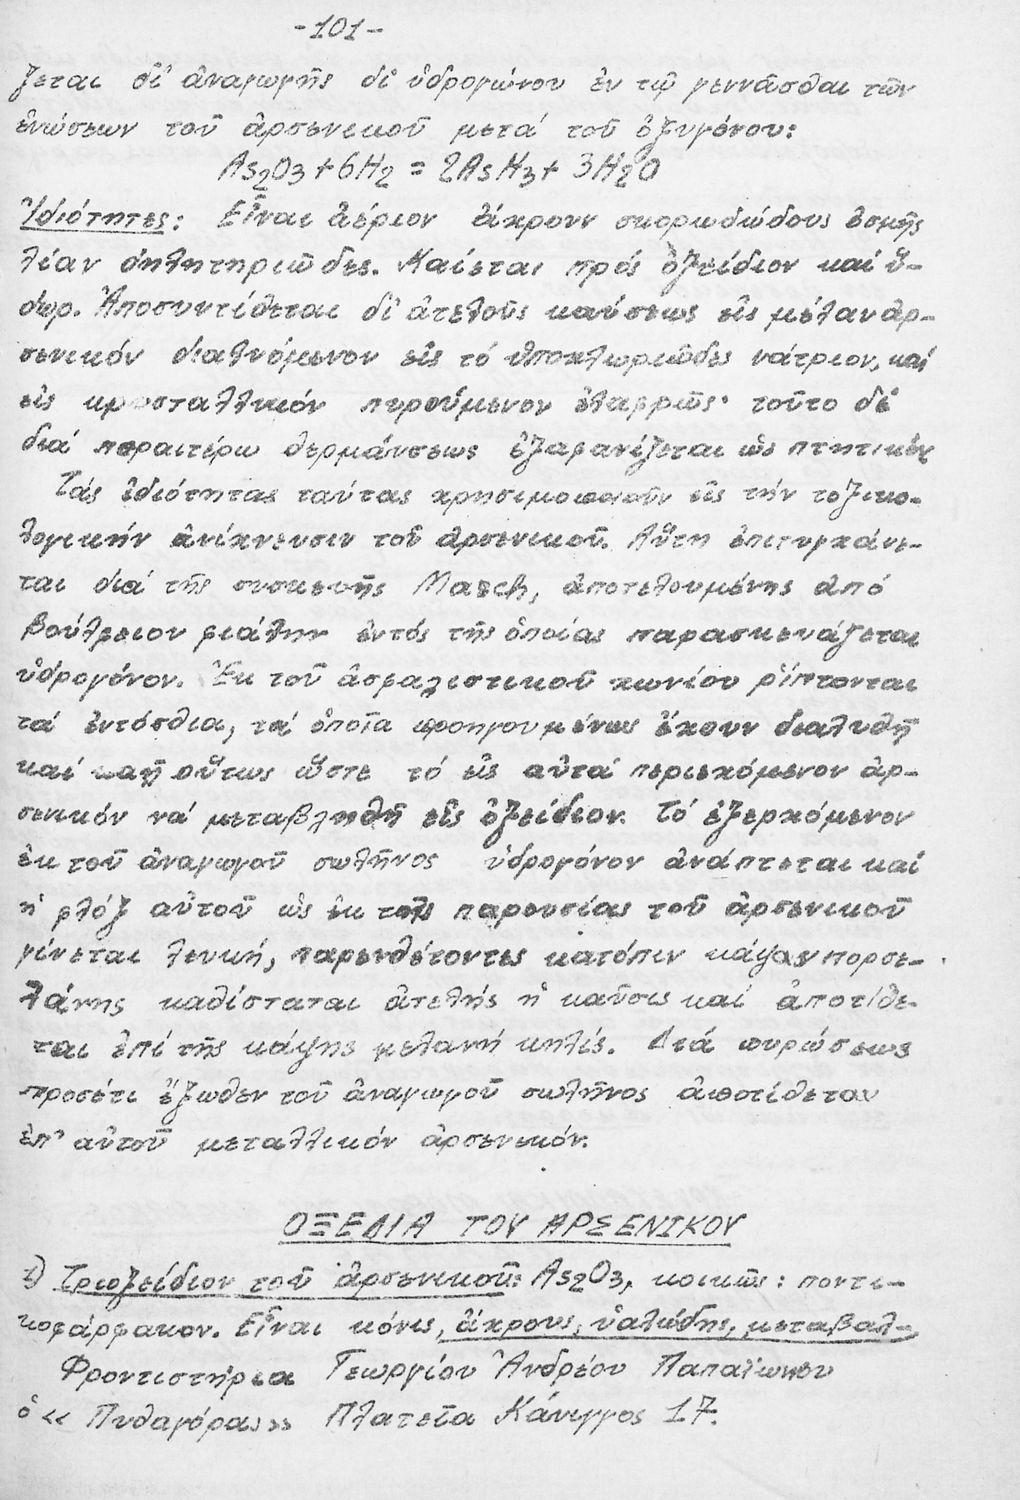 -101-
ζεται δι' ἀναγωγῆς δι' ὑδρογόνου ἐν τῷ γεννᾶσθαι τῶν
ἑνώσεων τοῦ ἀρσενικοῦ μετά τοῦ ὀξυγόνου:
As2O3 + 6H2 = 2AsH3 + 3H2O
Ἰδιότητες: Εἶναι ἀέριον ἄχρουν σκορωδώδους ὀσμῆς
λίαν δηλητηριῶδες. Καίεται πρός ὀξείδιον καί ὕ-
δωρ. Ἀποσυντίθεται δι' ἀτελοῦς καύσεως εἰς μέλαν ἀρ-
σενικόν διαλυόμενον εἰς τό ὑποχλωριῶδες νάτριον, καί
εἰς κρυσταλλικόν πυρούμενον ἐλαφρῶς· τοῦτο δέ
διά περαιτέρω θερμάνσεως ἐξαφανίζεται ὡς πτητικόν
Τάς ἰδιότητας ταύτας χρησιμοποιοῦν εἰς τήν τοξικο-
λογικήν ἀνίχνευσιν τοῦ ἀρσενικοῦ. Αὕτη ἐπιτυγχάνε-
ται διά τῆς συσκευῆς Marsch, ἀποτελουμένης ἀπό
βούλφειον φιάλην ἐντός τῆς ὁποίας παρασκευάζεται
ὑδρογόνον. Ἐκ τοῦ ἀσφαλιστικοῦ χωνίου ρίπτονται
τά ἐντόσθια, τά ὁποῖα προηγουμένως ἔχουν διαλυθῆ
καί καῆ οὕτως ὥστε τό εἰς αὐτά περιεχόμενον ἀρ-
σενικόν νά μεταβληθῆ εἰς ὀξείδιον. Τό ἐξερχόμενον
ἐκ τοῦ ἀναγωγοῦ σωλῆνος ὑδρογόνον ἀνάπτεται καί
ἡ φλόξ αὐτοῦ ὡς ἐκ τῆς παρουσίας τοῦ ἀρσενικοῦ
γίνεται λευκή, παρενθέτοντες κατόπιν κάψαν πορσε-
λάνης καθίσταται ἀτελής ἡ καῦσις καί ἀποτίθε-
ται ἐπί τῆς κάψης μελανή κηλίς. Διά πυρώσεως
προσέτι ἔξωθεν τοῦ ἀναγωγοῦ σωλῆνος ἀποτίθεται
ἐπ' αὐτοῦ μεταλλικόν ἀρσενικόν.
ΟΞΕΔΙΑ ΤΟΥ ΑΡΣΕΝΙΚΟΥ
1) Τριοξείδιον τοῦ ἀρσενικοῦ: As2O3, κοικῶς: ποντι-
κοφάρφακον. Εἶναι κόνις, ἄχρους, ὑαλώδης, μεταβαλ-
Φροντιστήρια Γεωργίου Ἀνδρέου Παπαϊώννου
ὁ «Πυθαγόρας» Πλατεῖα Κάνιγγος 17.